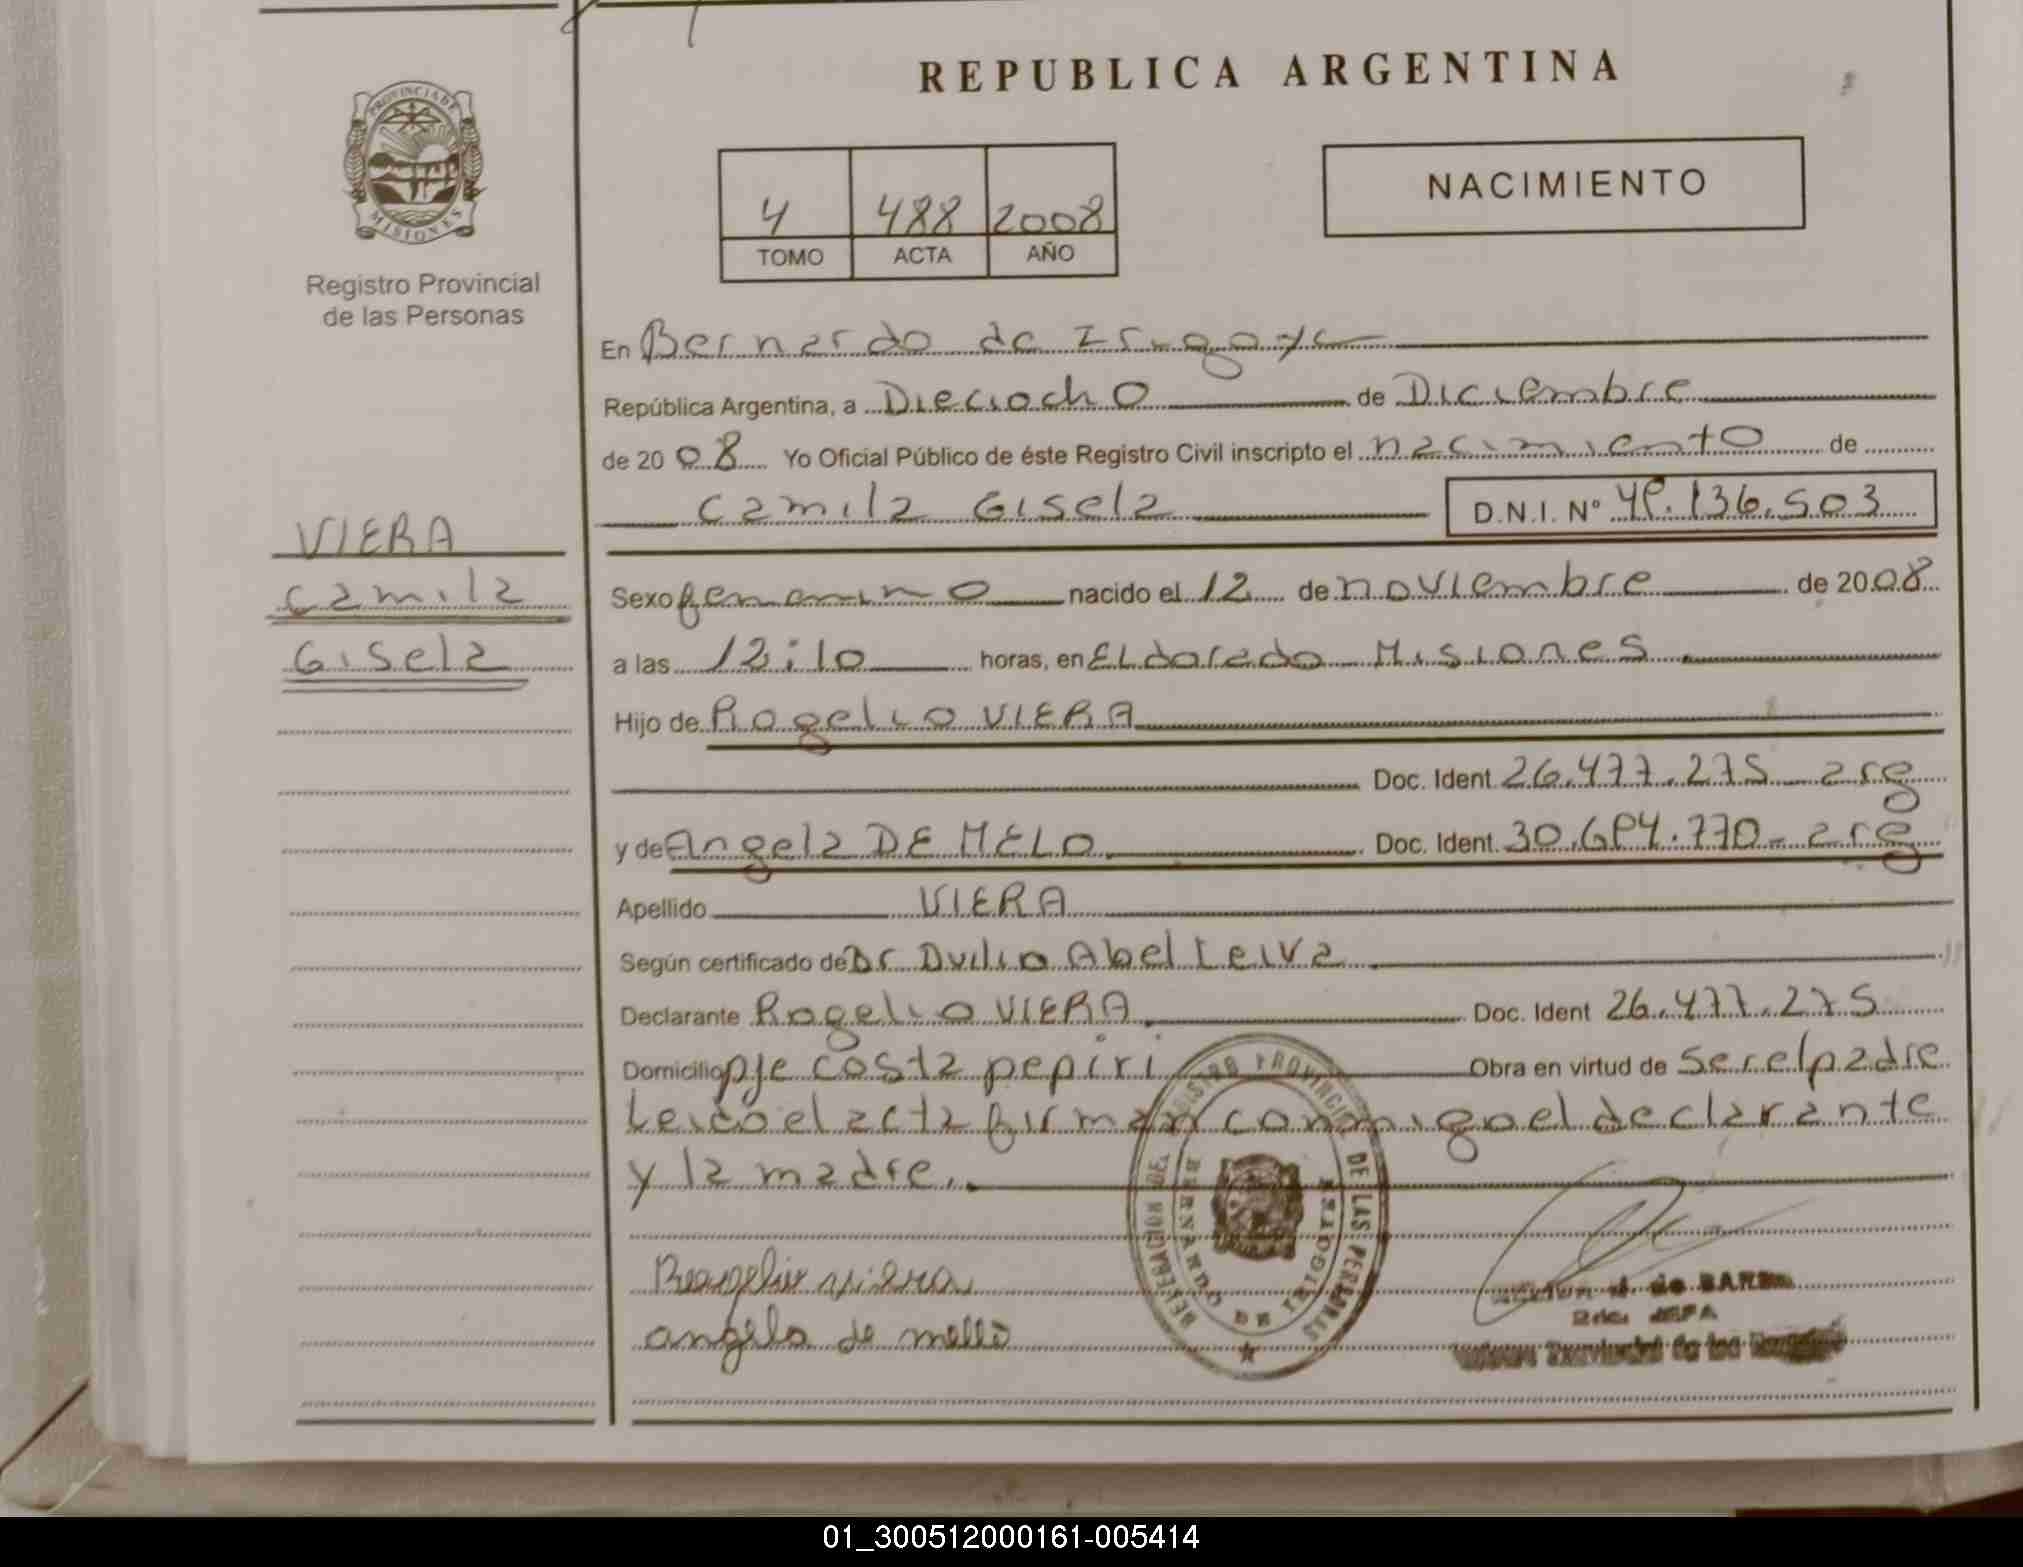 REPUBLICA ARGENTINA
PROVINCIA DE
MISIONES
Registro Provincial
de las Personas
4 488 2008
TOMO ACTA AÑO
NACIMIENTO
En Bernardo de Irigoye
República Argentina, a Dieciocho de Diciembre
de 2008 Yo Oficial Público de éste Registro Civil inscripto el nacimiento de
Camila Gisela D.N.I. Nº 49.136.503
VIERA
Camila
Gisela
Sexo femenino nacido el 12 de noviembre de 2008
a las 12:10 horas, en ELdorado Misiones
Hijo de Rogelio VIERA
Doc. Ident. 26.477.275 arg
y de Angela DE MELO Doc. Ident. 30.694.770- arg
Apellido VIERA
Según certificado de Dr Duilio Abel Leiva
Declarante Rogelio VIERA Doc. Ident 26.477.275
Domicilio pje costa pepiri Obra en virtud de Ser el padre
Leido el acta firman conmigo el declarante
y la madre.
DELEGACION DEL REGISTRO PROVINCIAL DE LAS PERSONAS
BERNARDO DE IRIGOYEN
Rogelio viera
angela de mello
de
JEFA
Provincial de las
01_300512000161-005414